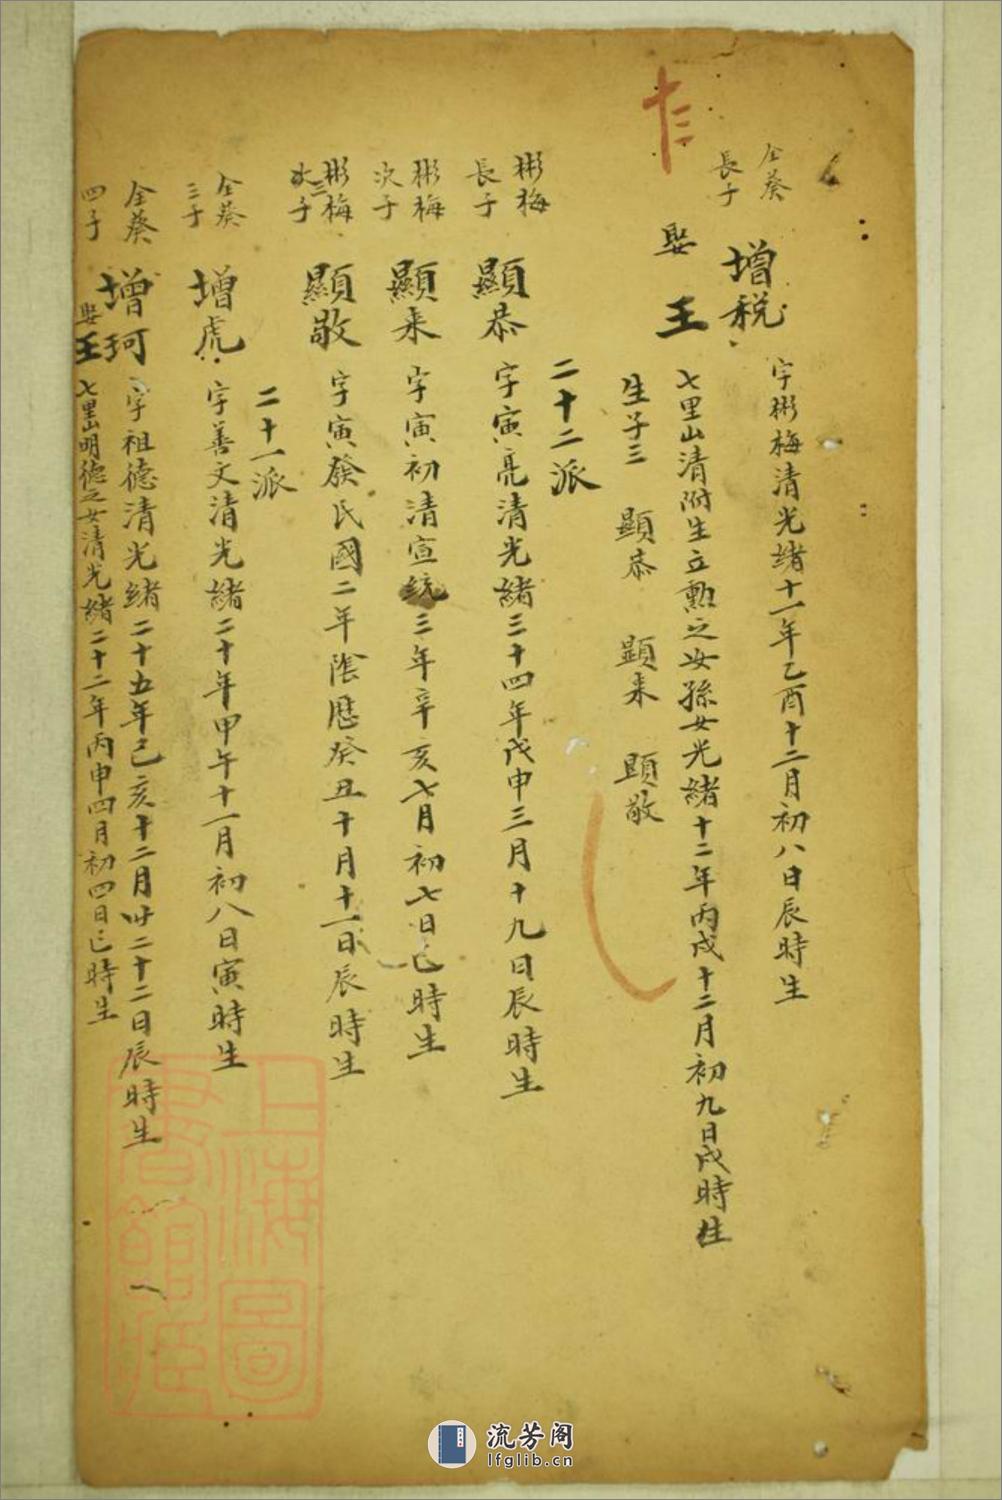 十三
仝葵
長子
增税
字彬梅清光緒十一年乙酉十二月初八日辰時生
娶王
七里山清附生立勲之女孫女光緒十二年丙戌十二月初九日戌時生
生子三 顯恭 顯来 顯敬
二十二派
彬梅
長子
顯恭
字寅亮清光緒三十四年戊申三月十九日辰時生
彬梅
次子
顯来
字寅初清宣統三年辛亥七月初七日巳時生
彬梅
三子
顯敬
字寅發民國二年陰厯癸丑十月十一日辰時生
二十一派
仝葵
三子
增虎
字善文清光緒二十年甲午十一月初八日寅時生
仝葵
四子
增珂
字祖德清光緒二十五年己亥十二月廿二十二日辰時生
娶王
七里山明德之女清光緒二十二年丙申四月初四日巳時生
上海圖書館藏
流芳阁
lfglib.cn